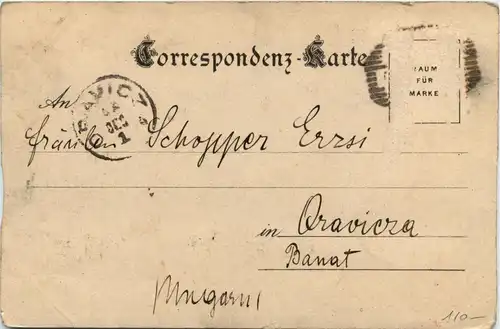 Correspondenz-Karte
RAUM
FÜR
MARKE
An
ORAVICZ
DEC
Fräulein Schopper Erzsi
in Oravicza
Banat
Ungarn
110-